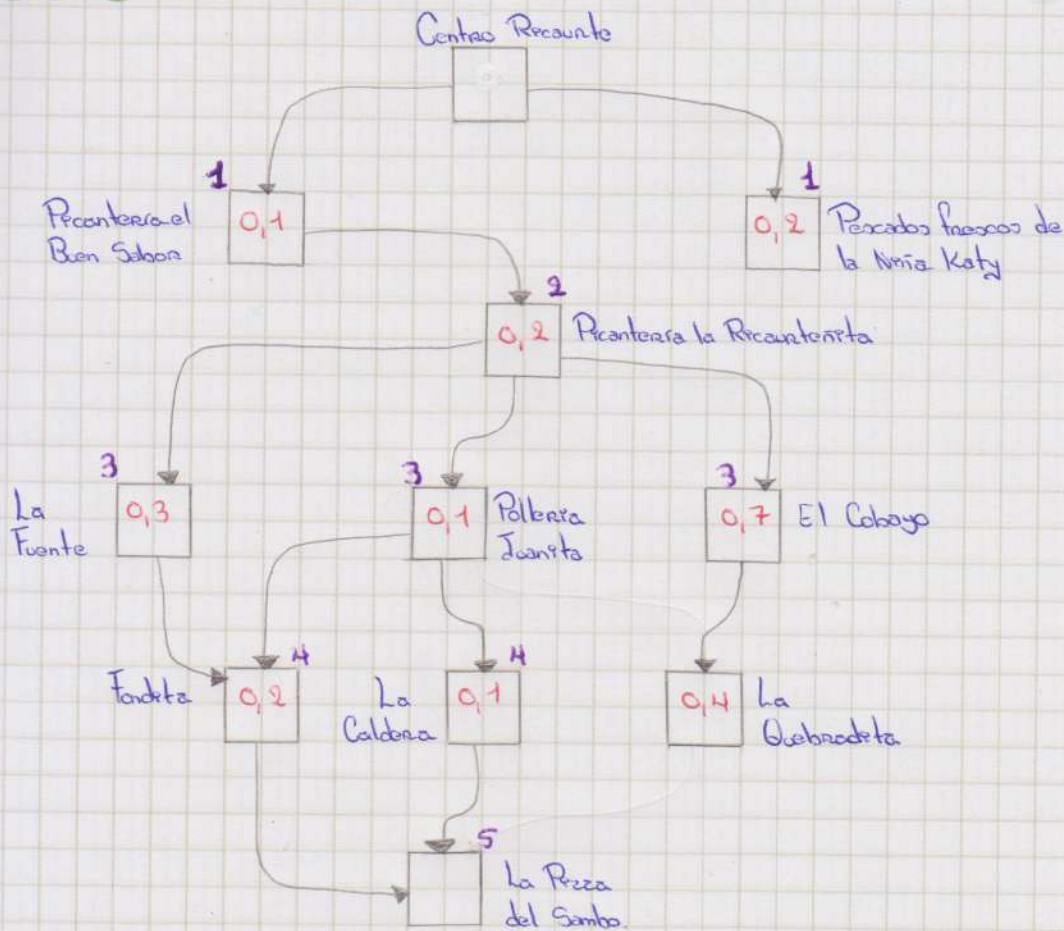 Centro Recaurte
1
1
Picantería el
Buen Sabor
0,1
0,2
Pescados frescos de
la Niña Katy
2
0,2
Picantería la Recaurteñita
3
3
3
La
Fuente
0,3
0,1
Pollería
Juanita
0,7
El Cobayo
4
4
Fondita
0,2
La
Caldera
0,1
0,4
La
Quebradita
5
La Pizza
del Sambo.